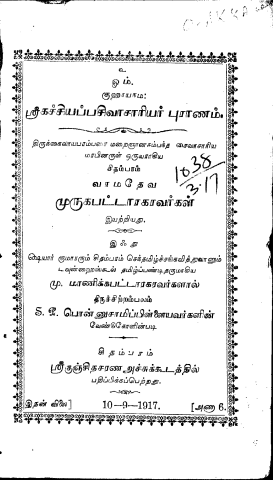 உ
ஓம்.
குஹாயநம:
ஸ்ரீகச்சியப்பசிவாசாரியர் புராணம்.
திருக்கைலாயபரம்பரை மறைஞானசம்பந்த சைவாசாரிய
மரபினருள் ஒருவராகிய
சிதம்பரம்
வாமதேவ
முருகபட்டாரகரவர்கள்
இயற்றியது.
1038
3.17
இஃது
குமாரரும் சிதம்பரம்
தமிழ்ப்பண்டிதருமாகிய
மு. மாணிக்கபட்டாரகரவர்களால்
திருச்சிற்றம்பலம்
பொன்னுசாமிப்பிள்ளையவர்களின்
வேண்டுகோளின்படி
சிதம்பரம்
ஸ்ரீகுஞ்சிதசரண அச்சுக்கூடத்தில்
பதிப்பிக்கப்பெற்றது.
இதன் விலை] 10-9-1917. [அணா 6.